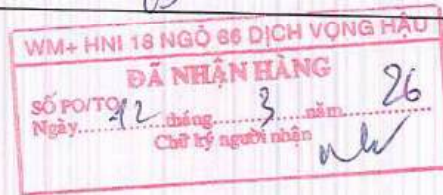 WM+ HNI 18 NGÕ 86 DỊCH VỌNG HẬU
ĐÃ NHẬN HÀNG
SỐ PO/TO
Ngày 12 tháng 3 năm 26
Chữ ký người nhận